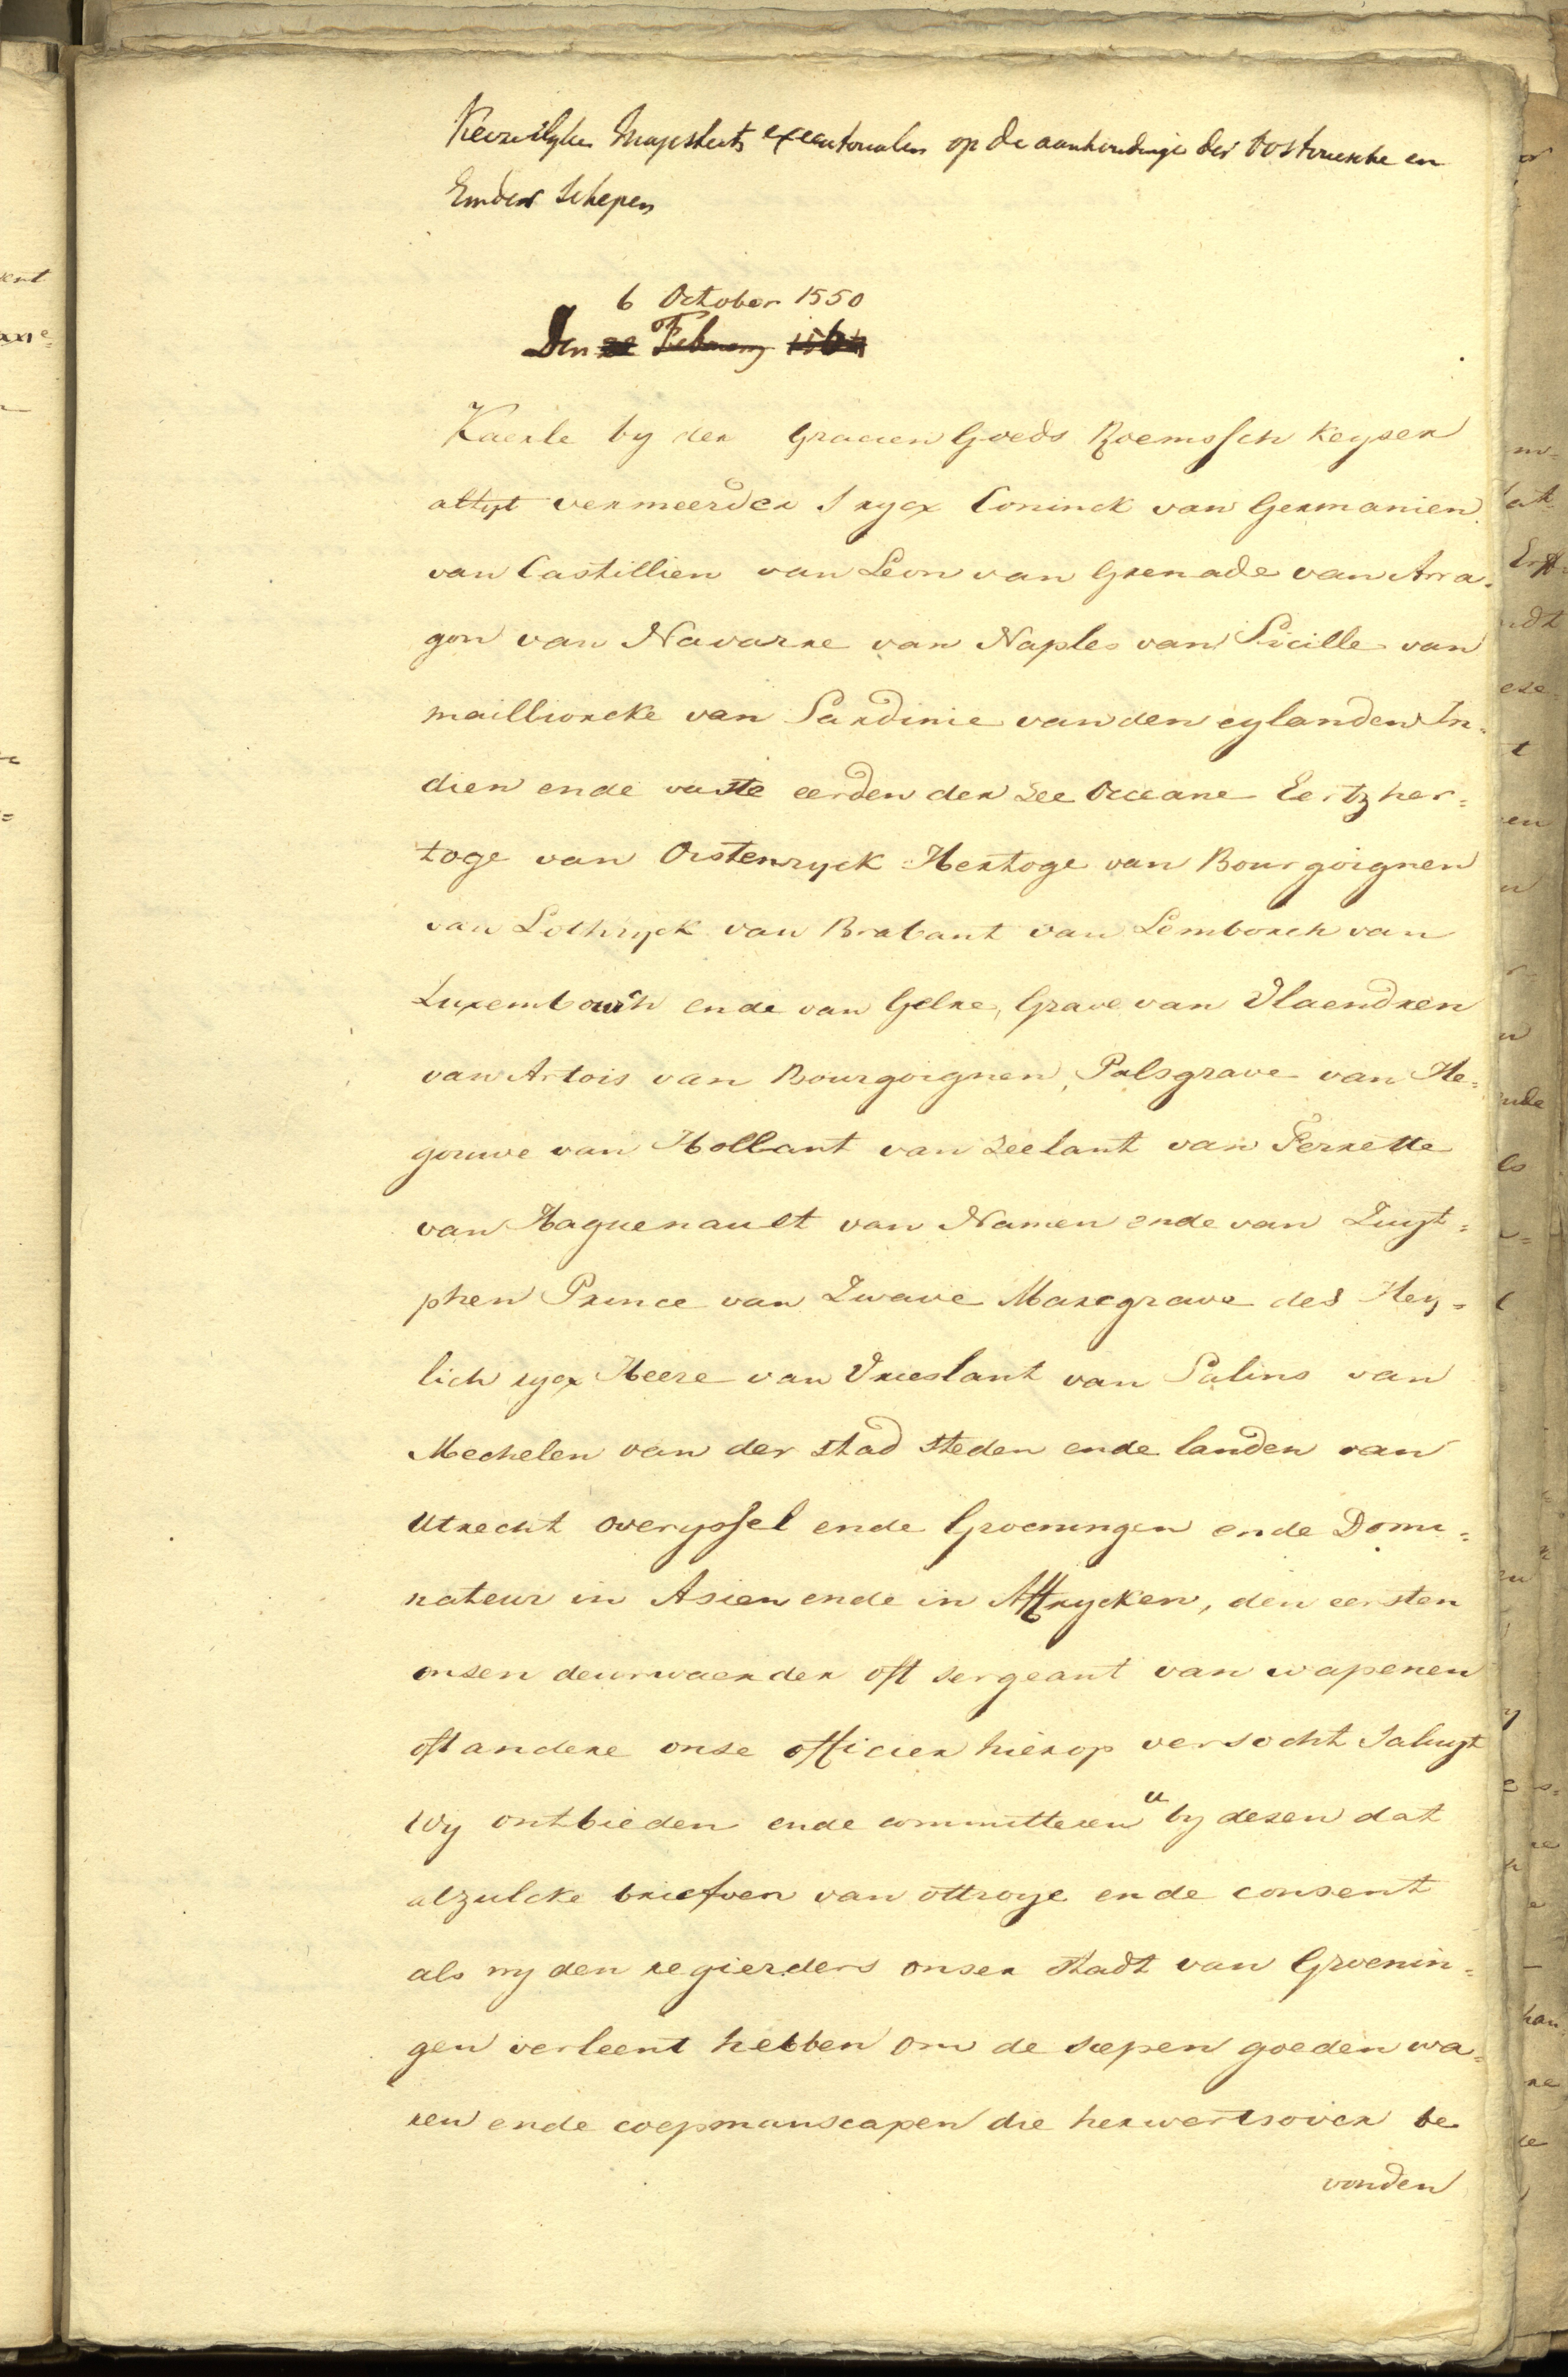 Keizerlyke Majesteits executorialen op de aanhoudinge der Oostvriesche en
Emder Schepen
6 October 1550
Den 22 February
Kaerle by der Gracien Goeds Roemssch Keyser
altyt vermeerder Srycx Coninck van Germanien
van Castillien van Leon van Grenade van Arra-
gon van Navarre van Naples van Sicille van
mailliorcke van Sardinie van den eylanden In-
dien ende vaste eerden der zee Occeane Eertzher=
toge van Oistenryck Hertoge van Bourgoignen
van Lothryck van Brabant van Lemborch van
Luxembourch ende van Gelre, Grave van Vlaendren
van Artois van Bourgoignen, Palsgrave van He=
gouwe van Hollant van Zeelant van Ferrette
van Haguenault van Namen ende van Zuyt=
phen Prince van Zwave Marcgrave des Hey=
lich rycx Heere van Vrieslant van Salins van
Mechelen van der stad steden ende landen van
Utrecht overyssel ende Groeningen ende Domi=
nateur in Asien ende in Affrycken, den eersten
onsen deurwaerder oft sergeant van wapenen
oft andere onse officier hierop versocht Saluyt
Wy ontbieden ende committeren u by desen dat
alzulcke briefven van ottroye ende consent
als wy den regierders onser stadt van Groenin=
gen verleent hebben om de scepen goeden wa=
ren ende coepmanscapen die herwertsover be
vonden